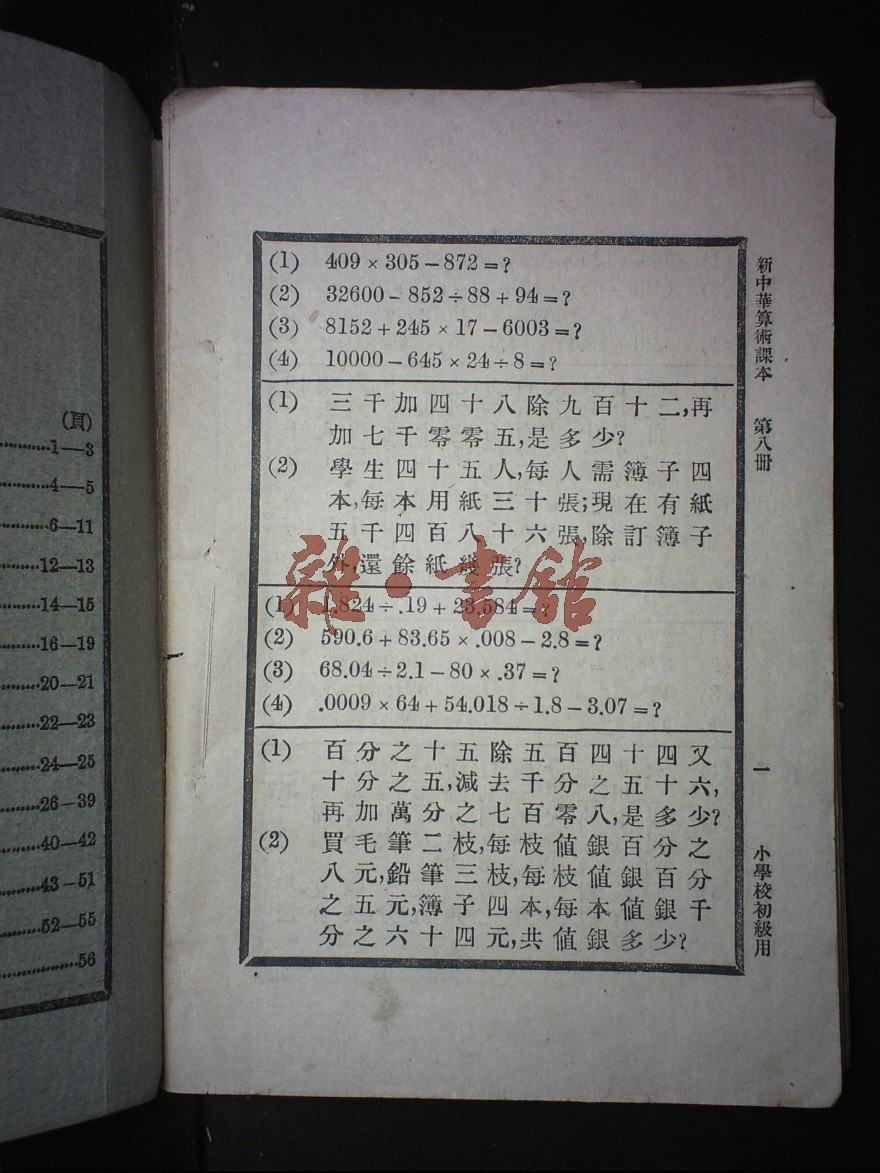 (頁)
1—3
4—5
6—11
12—13
14—15
16—19
20—21
22—23
24—25
26—39
40—42
43—51
52—55
56
(1) 409 × 305 − 872 = ?
(2) 32600 − 852 ÷ 88 + 94 = ?
(3) 8152 + 245 × 17 − 6003 = ?
(4) 10000 − 645 × 24 ÷ 8 = ?
(1) 三千加四十八除九百十二,再
加七千零零五,是多少?
(2) 學生四十五人,每人需簿子四
本,每本用紙三十張;現在有紙
五千四百八十六張,除訂簿子
外,還餘紙幾張?
(1) 1.824 ÷ .19 + 23.584 = ?
(2) 590.6 + 83.65 × .008 − 2.8 = ?
(3) 68.04 ÷ 2.1 − 80 × .37 = ?
(4) .0009 × 64 + 54.018 ÷ 1.8 − 3.07 = ?
(1) 百分之十五除五百四十四又
十分之五,減去千分之五十六,
再加萬分之七百零八,是多少?
(2) 買毛筆二枝,每枝值銀百分之
八元,鉛筆三枝,每枝值銀百分
之五元,簿子四本,每本值銀千
分之六十四元,共值銀多少?
新中華算術課本 第八冊
一
小學校初級用
雜·書館